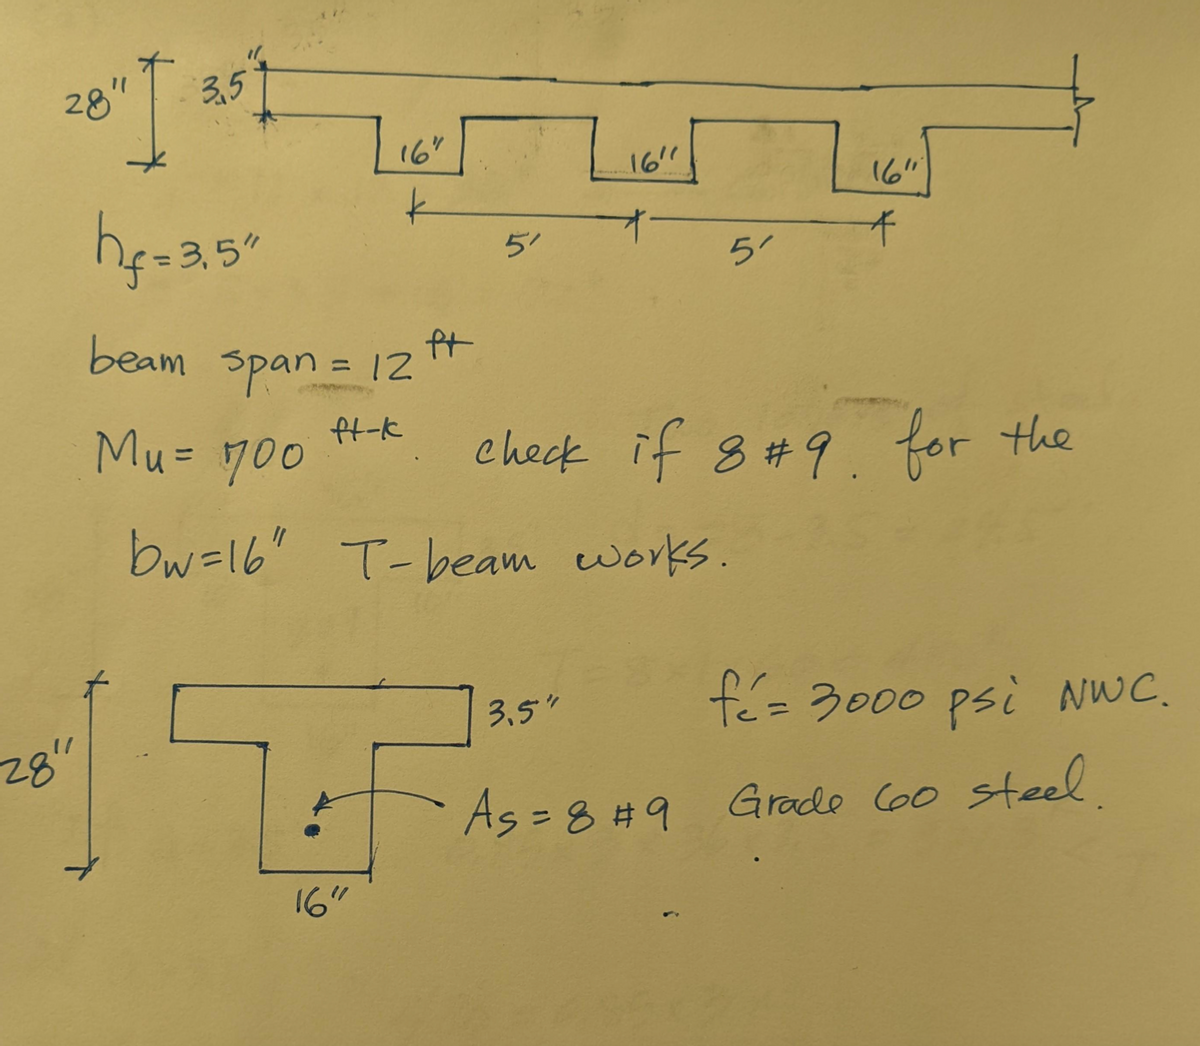 28" 3.5"
16" 16" 16"
5' 5'
hf = 3.5"
beam span = 12 ft
Mu = 700 ft-k. check if 8 #9. for the
bw=16" T-beam works.
3.5" f'c = 3000 psi NWC.
28"
As = 8 #9 Grade 60 steel.
16"